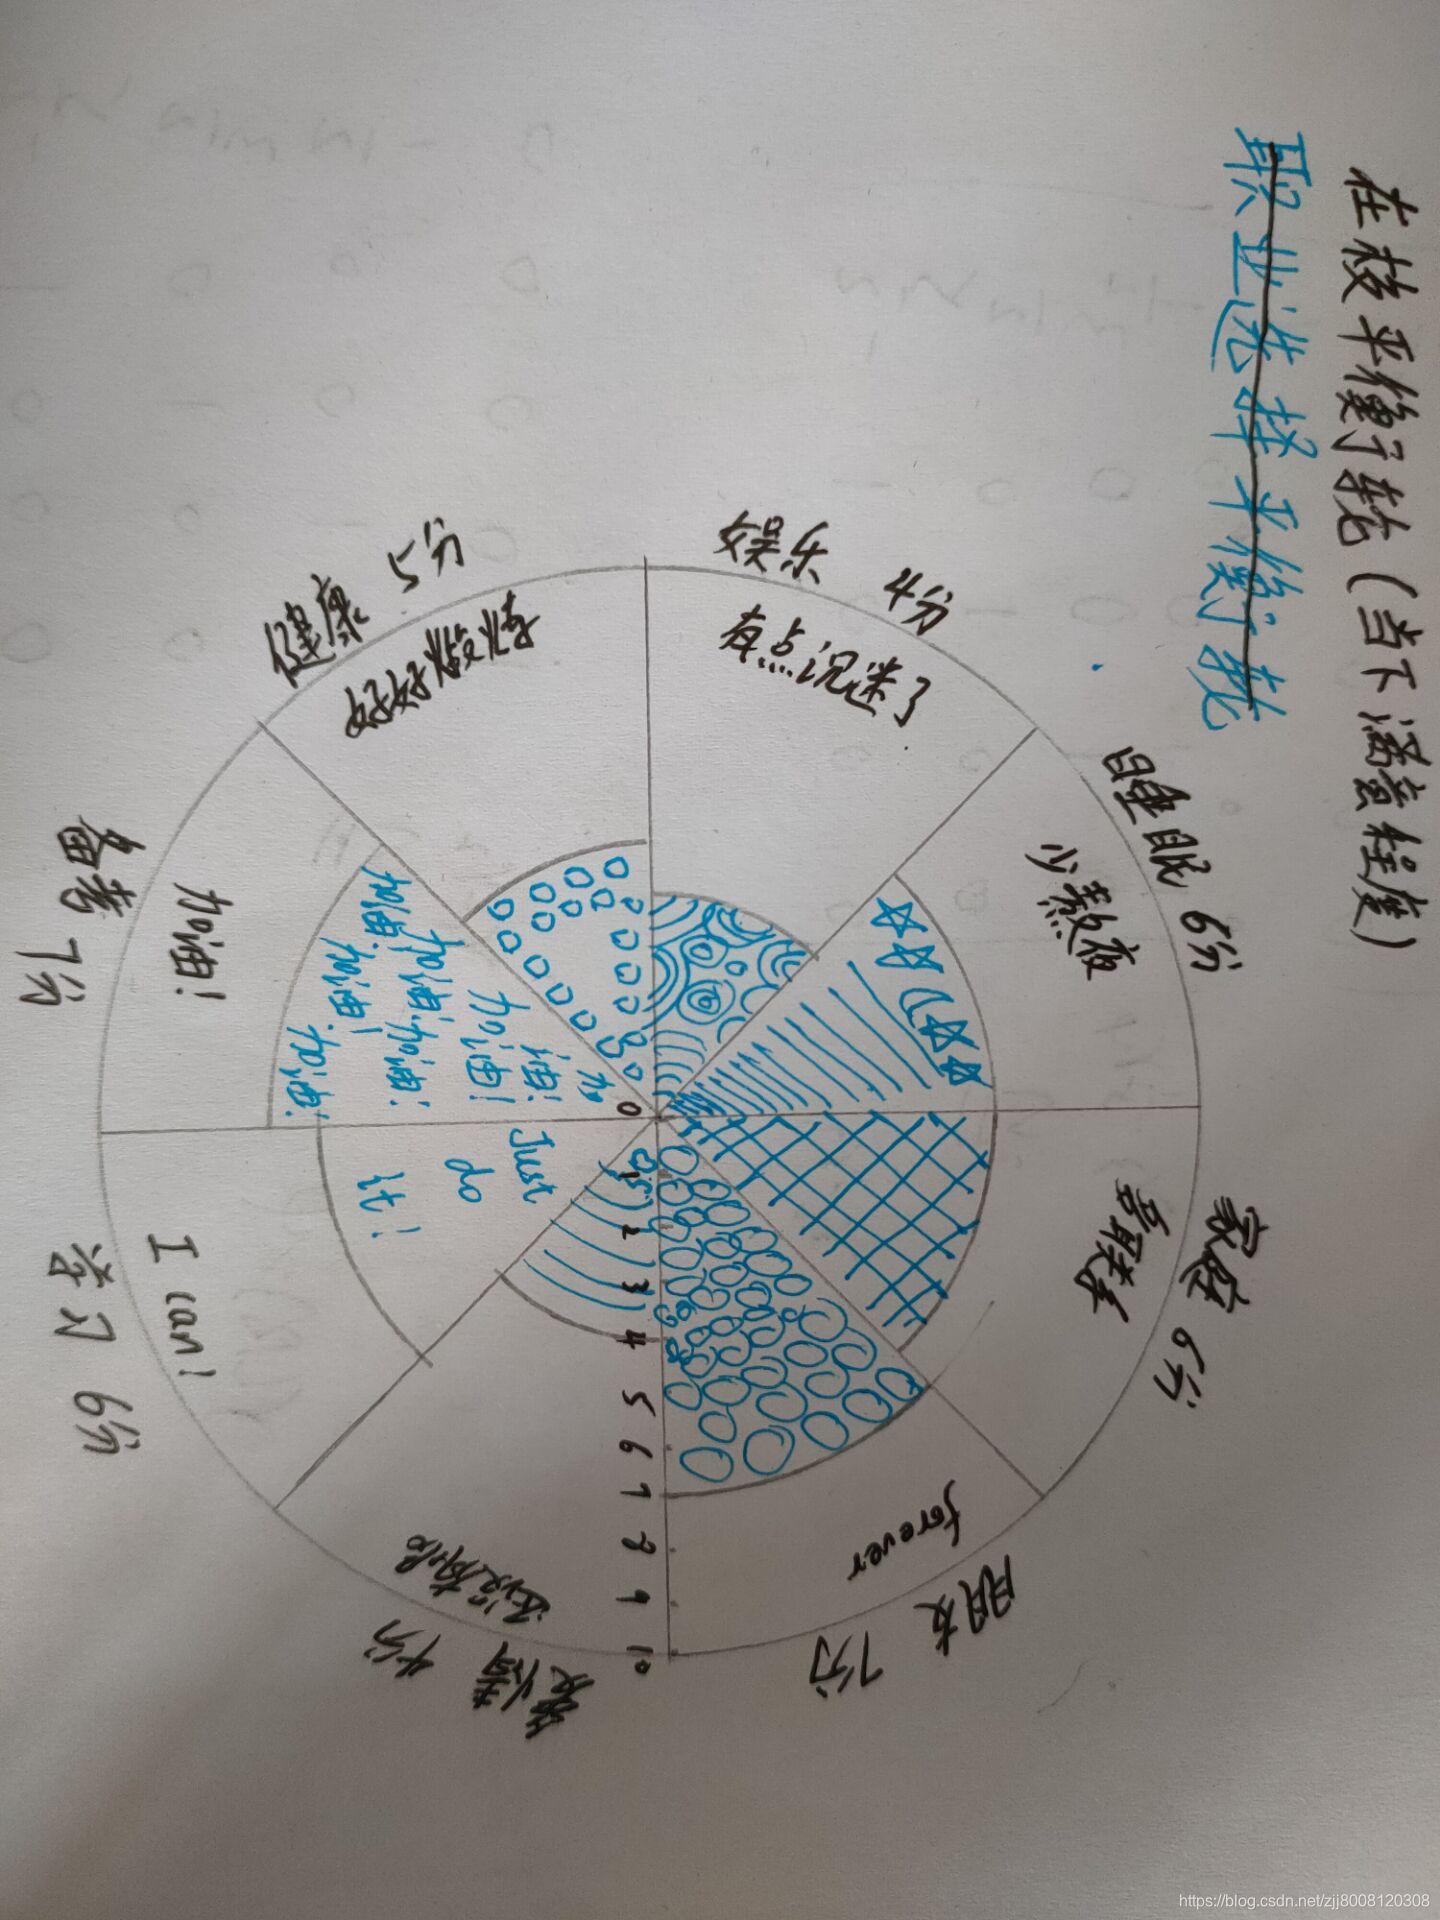 在校平衡轮(当下满意程度)
职业选择平衡轮
娱乐 4分
有点沉迷了
睡眠 6分
少熬夜
家庭 6分
多联系
朋友 7分
forever
爱情 4分
还没有呢
学习 6分
I can!
Just
do
it!
备考 7分
加油!
加油!
加油!加油!
加油!
加油!
加油!
健康 5分
好好锻炼
0
1
2
3
4
5
6
7
8
9
10
https://blog.csdn.net/zjj8008120308